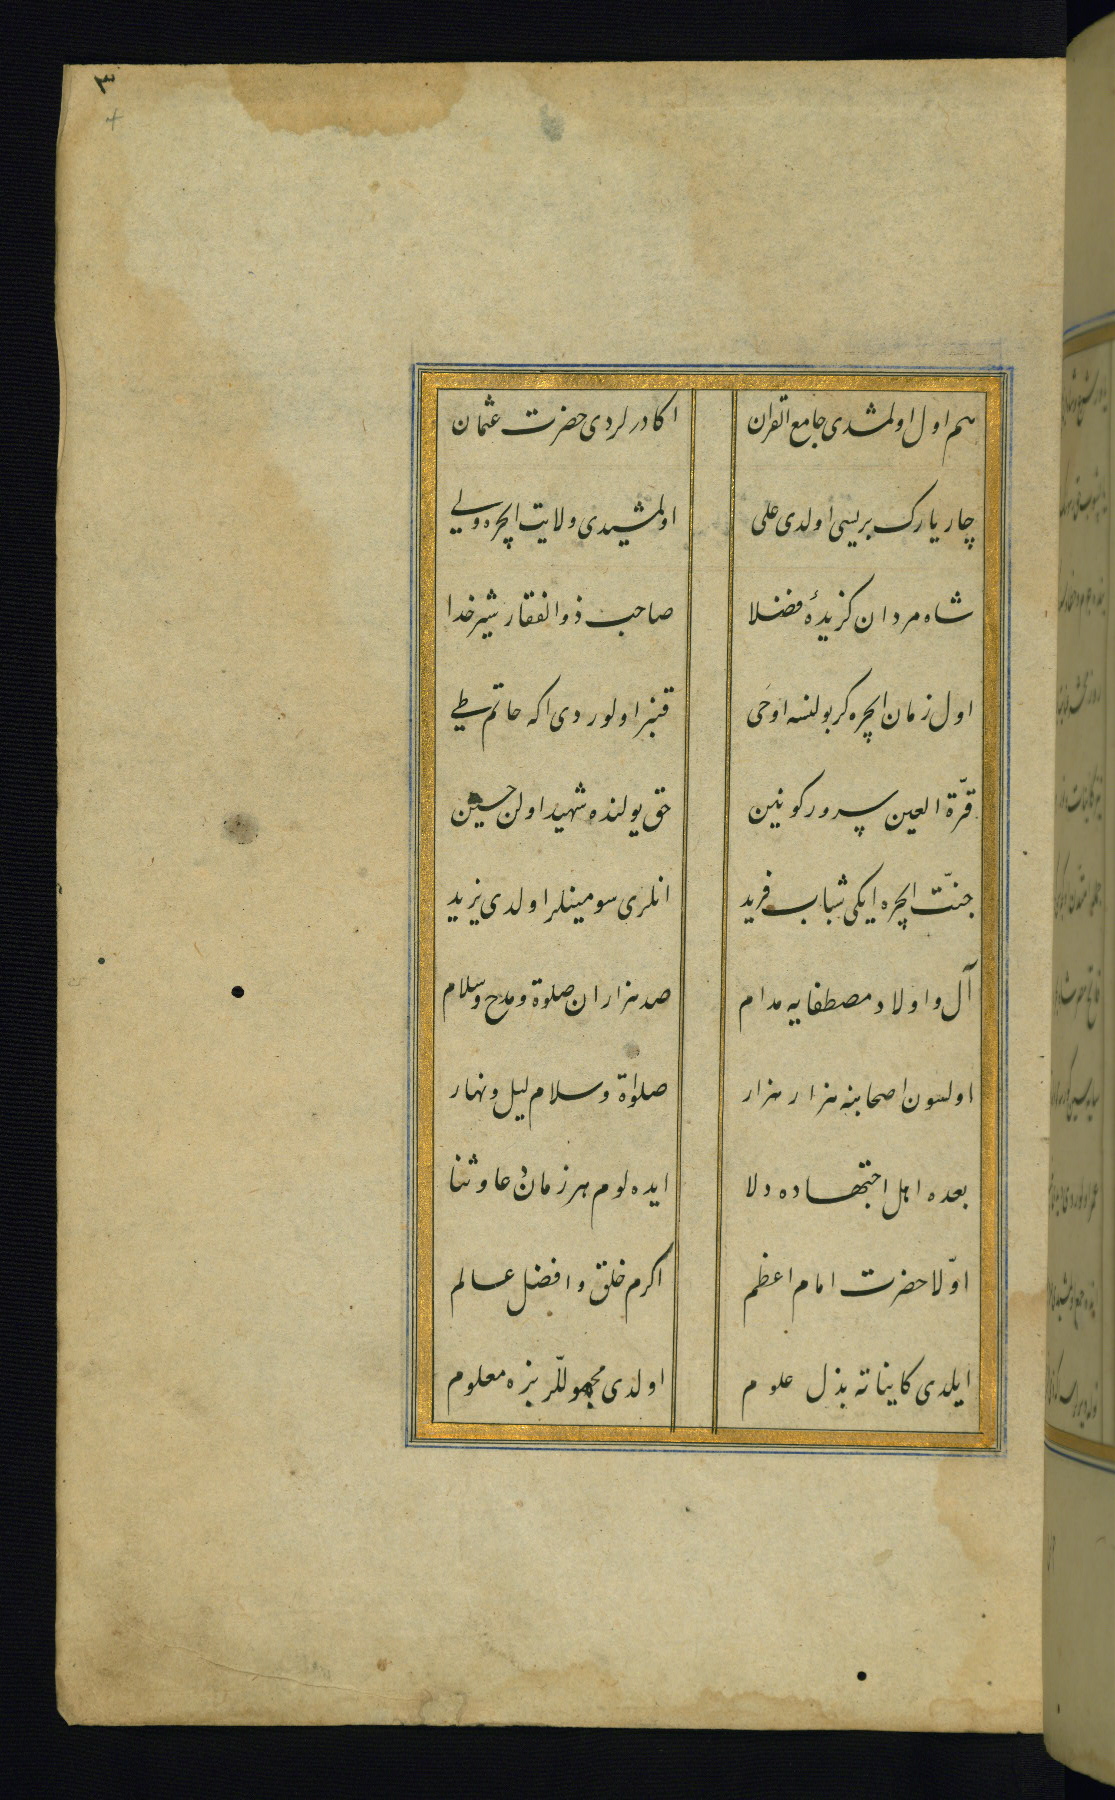 ٤
هم اول اولمشدی جامع القران
اكا درلردی حضرت عثمان
چار یارك بریسی اولدی علی
اولمشیدی ولایت ایچره ولی
شاه مردان كزیدهٔ فضلا
صاحب ذوالفقار شیر خدا
اول زمان ایچره كر بولنسه اوحی
قنبر اولوردی اكه حاتم طی
قرّة العین سرور كونین
حق یولنده شهید اولن حسین
جنّت ایچره ایكی شباب فرید
انلری سومینلر اولدی یزید
آل و اولاد مصطفایه مدام
صد هزاران صلوة و مدح و سلام
اولسون اصحابنه هزار هزار
صلوٰة و سلام لیل و نهار
بعده اهل اجتهاده دلا
ایده لوم هر زمان دعا و ثنا
اوّلا حضرت امام اعظم
اكرم خلق و افضل عالم
ایلدی كایناته بذل علوم
اولدی مجهوللّر بزه معلوم